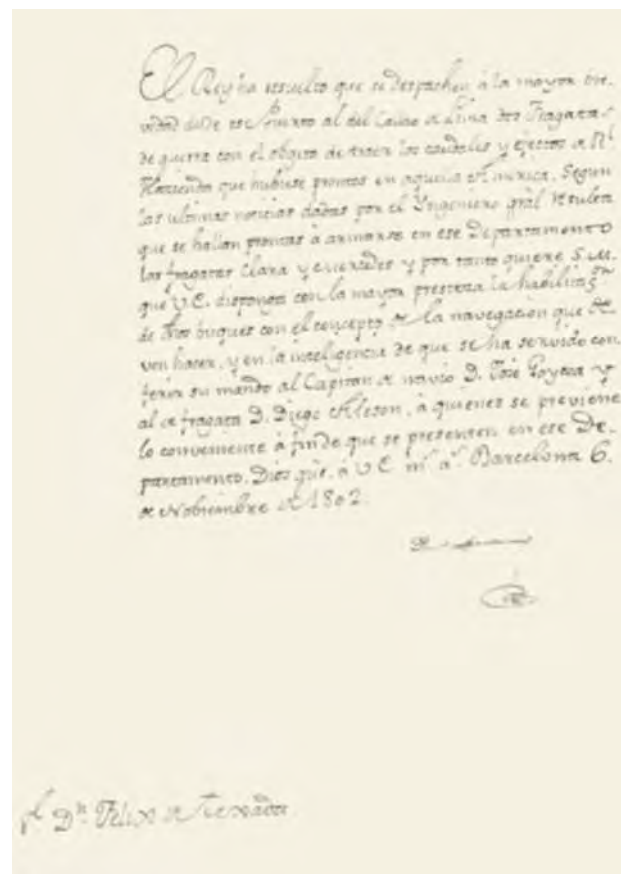 El Rey ha resuelto que se despachen à la mayor bre-
vedad desde ese Puerto al del Callao de Lima dos Fragatas
de guerra con el objeto de traer los caudales y efectos de Rl.
Hacienda que hubiese prontos en aquella America. Segun
las ultimas noticias dadas por el Yngeniero gràl resulta
que se hallan prontas à armarse en ese Departamento
las fragatas Clara y Mercedes y por tanto quiere S.M.
que V.E. disponga con la mayor presteza la habilitaon.
de dhos buques con el concepto de la navegacion que de-
ven hacer, y en la inteligencia de que se ha servido con-
ferir su mando al Capitan de navio D. José Goycoa y
al de fragata D. Diego Aleson, à quienes se previene
lo conveniente à fin de que se presenten en ese De-
partamento. Dios gûe. à V.E. ms. as. Barcelona 6.
de Nobiembre de 1802.
Dn. Felix de Texada